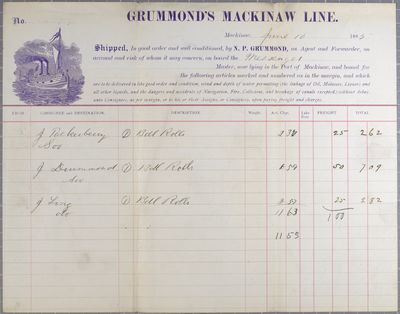 GRUMMOND'S MACKINAW LINE.
No.
Mackinac, June 10 188
Shipped, In good order and well conditioned, by N. P. GRUMMOND, as Agent and Forwarder, on
account and risk of whom it may concern, on board the Messenger
Master, now lying in the Port of Mackinac, and bound for
the following articles marked and numbered as in the margin, and which
are to be delivered in like good order and condition, wind and depth of water permitting
and all other liquids, and the dangers and accidents of Navigation, Fire, Collisions, and breakage of castings excepted, without delay,
unto Consignees, as per margin, or to his or their Assigns, or Consignees, upon paying freight and charges.
CONSIGNEE AND DESTINATION. DESCRIPTION. Weight. Act. Chgs. FREIGHT TOTAL
J 1 Bill Rolls 25 2 62
Soo
J Drummond 1 Bill Rolls 6 59 50 7 09
Soo
J 1 Bill Rolls 25
do 11 63 1 00
11 53